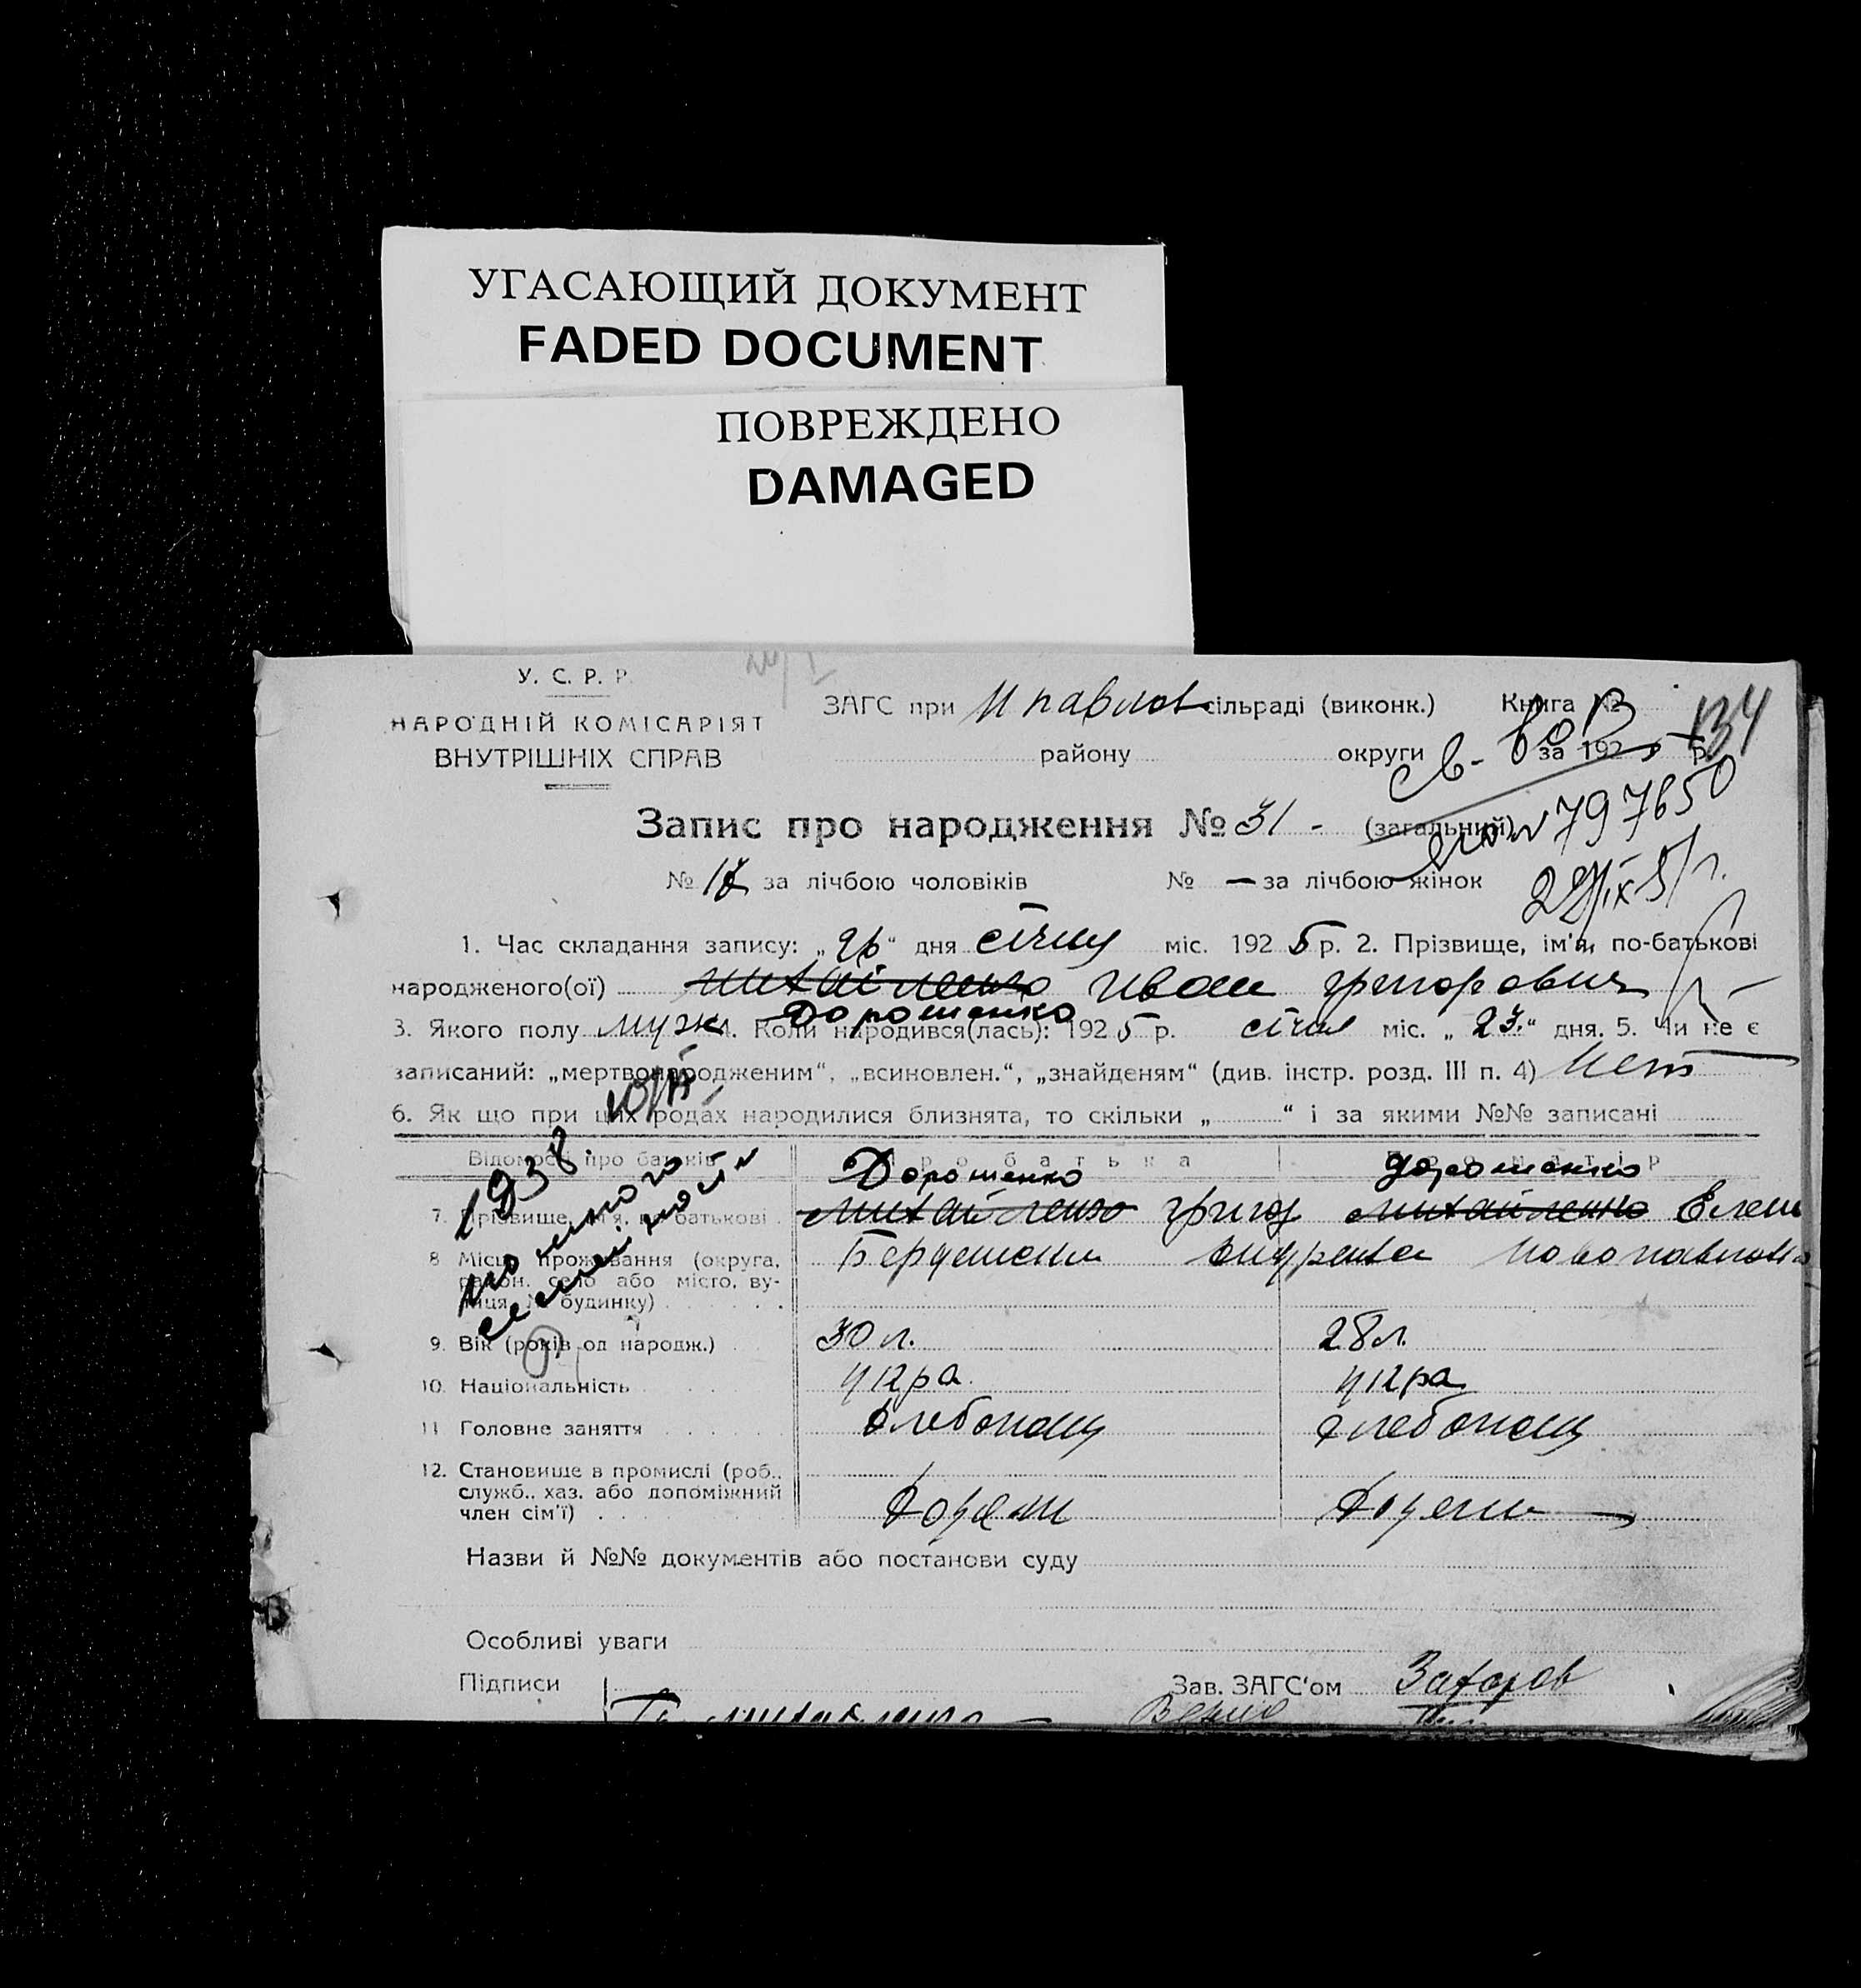 УГАСАЮЩИЙ ДОКУМЕНТ
FADED DOCUMENT
ПОВРЕЖДЕНО
DAMAGED
У. С. Р. Р.
НАРОДНІЙ КОМІСАРІЯТ
ВНУТРІШНІХ СПРАВ
ЗАГС при Н павлов сільраді (виконк.) Книга №
134
району округи за 192 р.
797650
Запис про народження № 31 - (загальний)
№ 17 за лічбою чоловіків № — за лічбою жінок
1. Час складання запису: „26“ дня січня міс. 1925 р. 2. Прізвище, ім'я, по-батькові
народженого(ої) михайленко Иван григорович
Дорошенко
3. Якого полу муж. 4. Коли народився(лась): 1925 р. січня міс. „23.“ дня. 5. Чи не є
записаний: „мертвонародженим“, „всиновлен.“, „знайденям“ (див. інстр. розд. III п. 4) Нет
6. Як що при цих родах народилися близнята, то скільки „ “ і за якими №№ записані
1938
Відомості про батьків Про батька Про матір
Дорошенко дорошенко
7. Прізвище, ім'я, по батькові михайленко григор михайленко Елен
8 Місце проживання (округа, район, село або місто, вулиця, № будинку)
9. Вік (років од народж.) 30 л. 28 л.
10. Національність укра укра
11 Головне заняття хлебопащ хлебопащ
12. Становище в промислі (роб.,
служб., хаз. або допоміжний
член сім'ї)
Назви й №№ документів або постанови суду
Особливі уваги
Підписи Зав. ЗАГС'ом Захаров